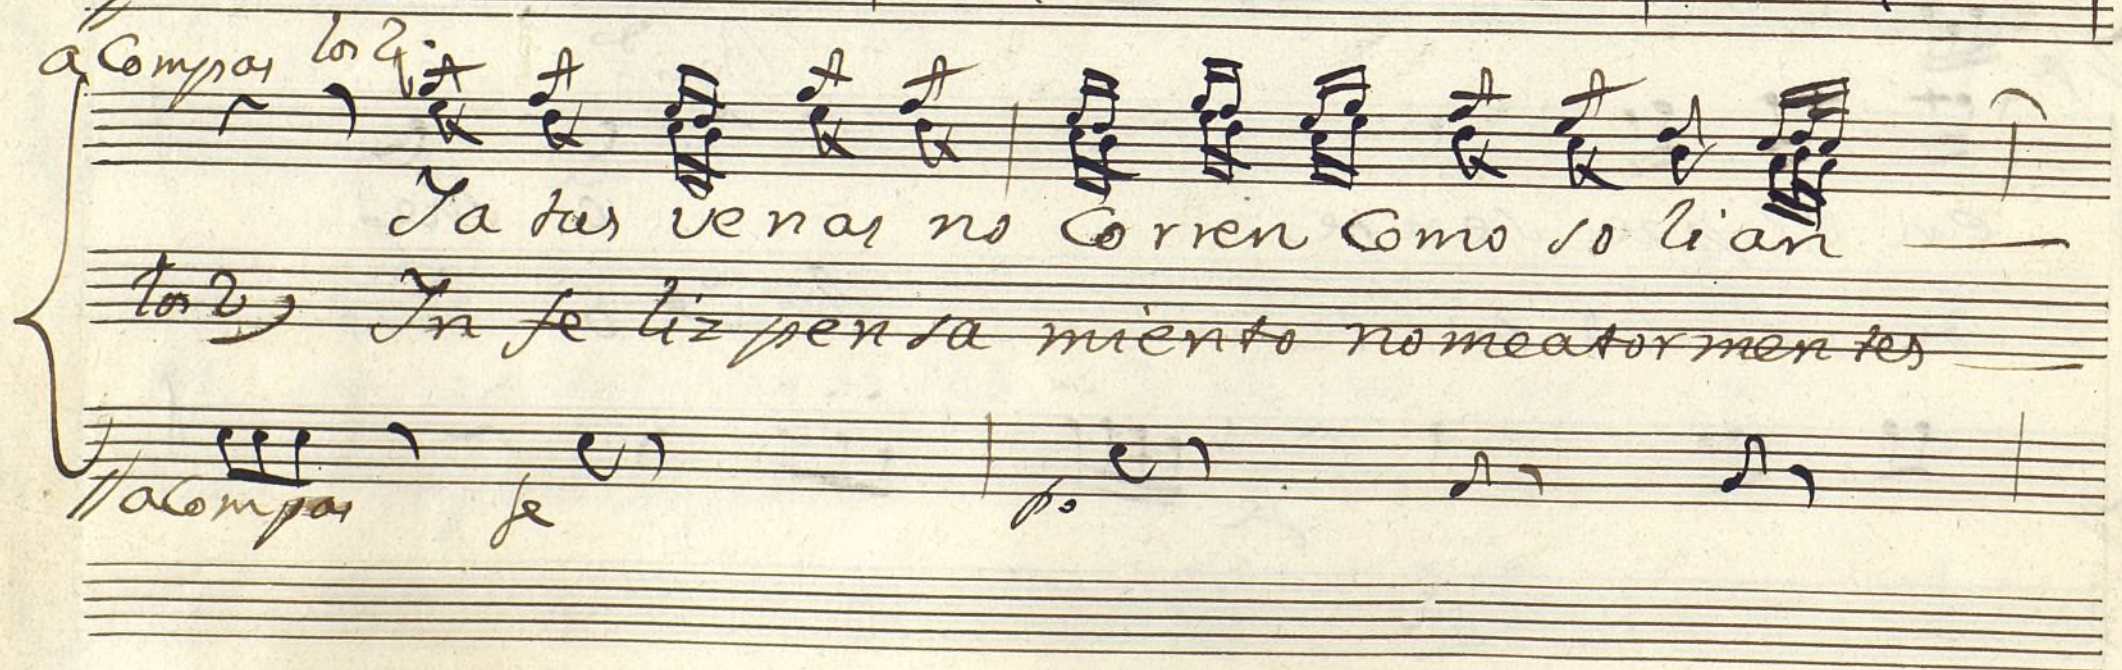 a Compas los 2.
Ya tus venas no Corren Como solian
los 2 In feliz pensamiento no me atormentes
a Compas fe po